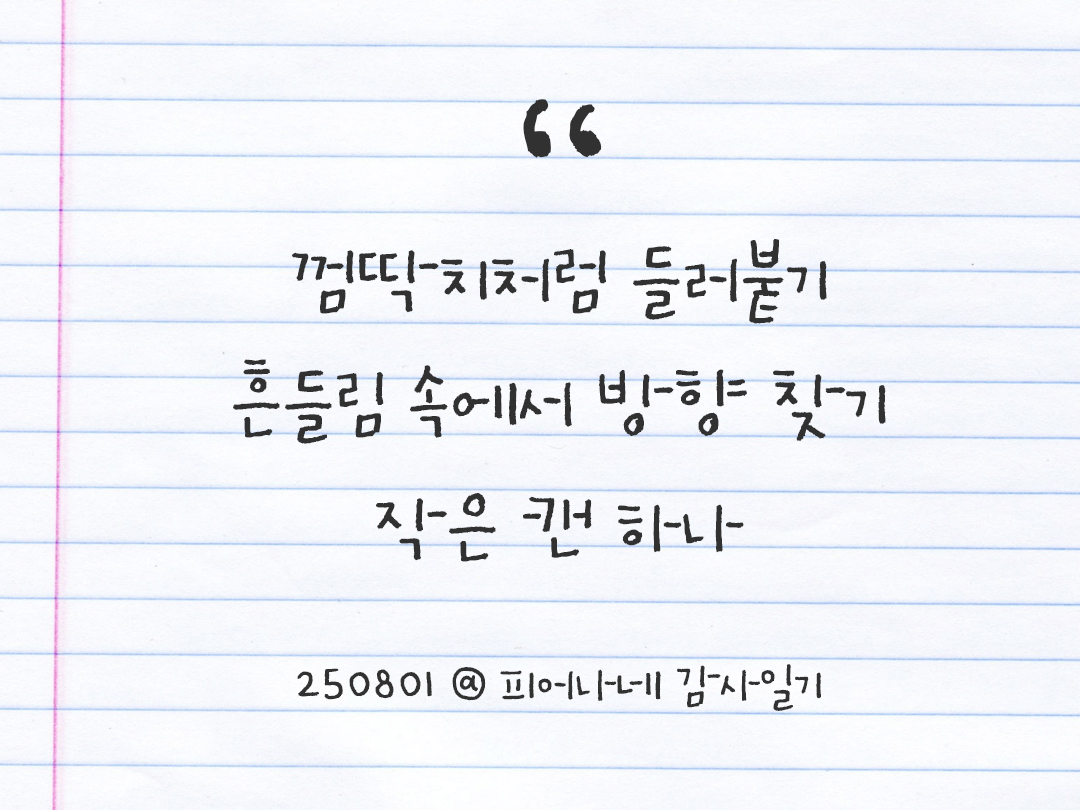 “
껌딱지처럼 들러붙기
흔들림 속에서 방향 찾기
작은 캔 하나
250801 @ 피어나네 감사일기